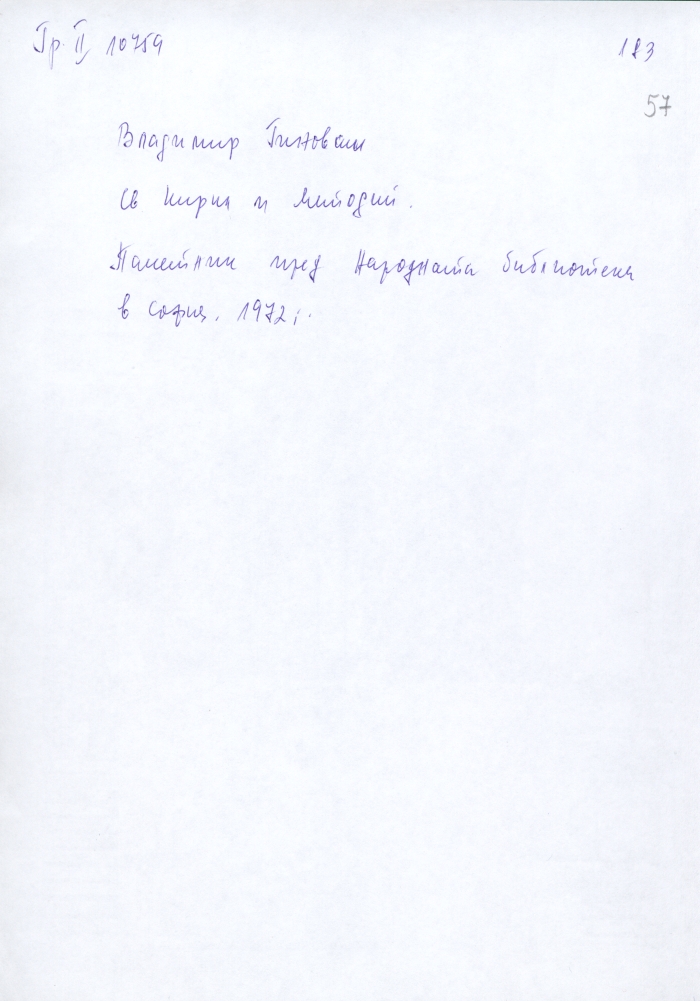 Гр. II 10759
183
57
Владимир Гиновски
Св Кирил и Методий.
Паметник пред Народната библиотека
в София. 1972 г.